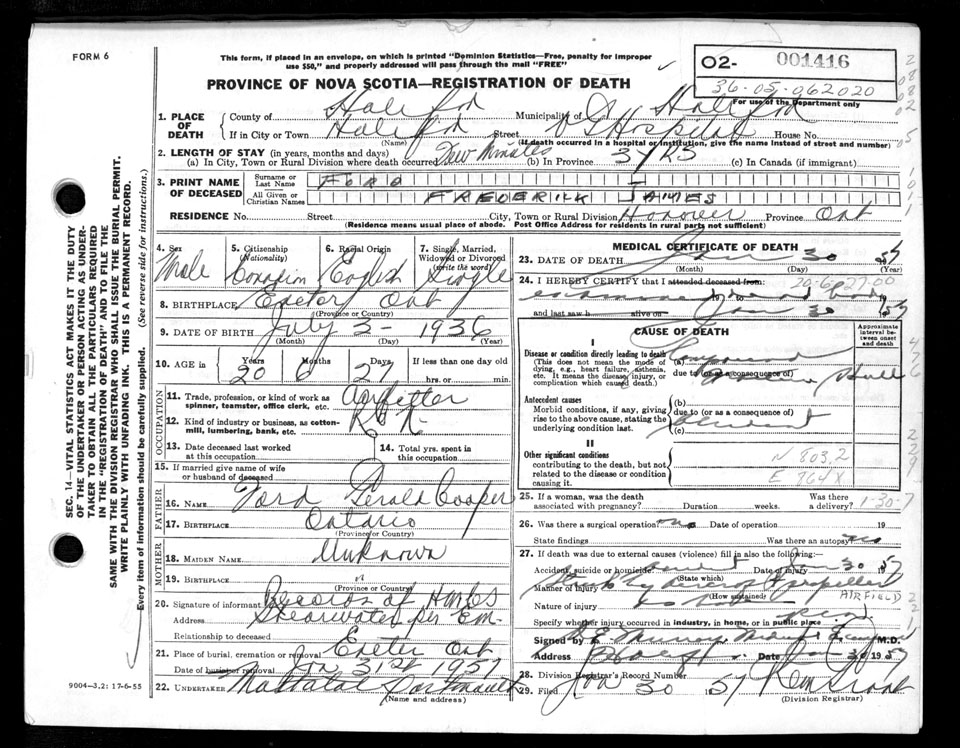 FORM 6
This form, if placed in an envelope, on which is printed "Dominion Statistics—Free, penalty for improper
use $50," and properly addressed will pass through the mail "FREE"
PROVINCE OF NOVA SCOTIA—REGISTRATION OF DEATH
O2- 001416
36-05-062020
For use of the Department only
1. PLACE OF DEATH
County of Halifax Municipality of Halifax
If in City or Town Halifax Street VG Hospital House No.
(Name) (If death occurred in a hospital or institution, give the name instead of street and number)
2. LENGTH OF STAY (in years, months and days)
(a) In City, Town or Rural Division where death occurred Few Minutes (b) In Province 3 yrs (c) In Canada (if immigrant)
3. PRINT NAME OF DECEASED
Surname or Last Name FORD
All Given or Christian Names FREDERICK JAMES
RESIDENCE No. Street City, Town or Rural Division Hanover Province Ont
(Residence means usual place of abode. Post Office Address for residents in rural parts not sufficient)
4. Sex Male
5. Citizenship (Nationality) Canadian
6. Racial Origin English
7. Single, Married, Widowed or Divorced (write the word) Single
8. BIRTHPLACE Exeter Ont
(Province or Country)
9. DATE OF BIRTH July 3 - 1936
(Month) (Day) (Year)
10. AGE in Years 20 Months 6 Days 27 If less than one day old hrs. or min.
OCCUPATION
11. Trade, profession, or kind of work as spinner, teamster, office clerk, etc.
12. Kind of industry or business, as cotton-mill, lumbering, bank, etc.
13. Date deceased last worked at this occupation
14. Total yrs. spent in this occupation
15. If married give name of wife or husband of deceased
FATHER
16. NAME Ford Gerald Cooper
17. BIRTHPLACE Ontario
(Province or Country)
MOTHER
18. MAIDEN NAME Unknown
19. BIRTHPLACE "
(Province or Country)
20. Signature of informant Records of
Address Shearwater per
Relationship to deceased
21. Place of burial, cremation or removal Exeter Ont
Date of burial or removal Jan 31st 1957
22. UNDERTAKER Mattatal Dartmouth
(Name and address)
9004—3.2: 17-6-55
MEDICAL CERTIFICATE OF DEATH
23. DATE OF DEATH Jan 30 57
(Month) (Day) (Year)
24. I HEREBY CERTIFY that I attended deceased from: 20-6-27-00
examined body
and last saw h alive on Jan 30 57
CAUSE OF DEATH
Approximate interval between onset and death
I
Disease or condition directly leading to death
(This does not mean the mode of dying, e.g., heart failure, asthenia, etc. It means the disease, injury, or complication which caused death.)
(a) Compound
due to (or as a consequence of) Skull
Antecedent causes
Morbid conditions, if any, giving rise to the above cause, stating the underlying condition last.
(b)
due to (or as a consequence of)
(c)
II
Other significant conditions
contributing to the death, but not related to the disease or condition causing it.
N 803.2
E 864X
25. If a woman, was the death associated with pregnancy? Duration weeks. Was there a delivery? 1-30-7
26. Was there a surgical operation no Date of operation 19
State findings Was there an autopsy no
27. If death was due to external causes (violence) fill in also the following:—
Accident, suicide or homicide Date of injury Jan 30 1957
(State which)
Manner of injury Struck by aircraft propeller
(How sustained) AIRFIELD
Nature of injury
Specify whether injury occurred in industry, in home, or in public place
Signed by Murray M.D.
Address Date Jan 30 1957
28. Division Registrar's Record Number
29. Filed Jan 30 57
(Division Registrar)
SEC. 14—VITAL STATISTICS ACT MAKES IT THE DUTY
OF THE UNDERTAKER OR PERSON ACTING AS UNDER-
TAKER TO OBTAIN ALL THE PARTICULARS REQUIRED
IN THE "REGISTRATION OF DEATH" AND TO FILE THE
SAME WITH THE DIVISION REGISTRAR WHO SHALL ISSUE THE BURIAL PERMIT.
WRITE PLAINLY WITH UNFADING INK. THIS IS A PERMANENT RECORD.
Every item of information should be carefully supplied. (See reverse side for instructions.)